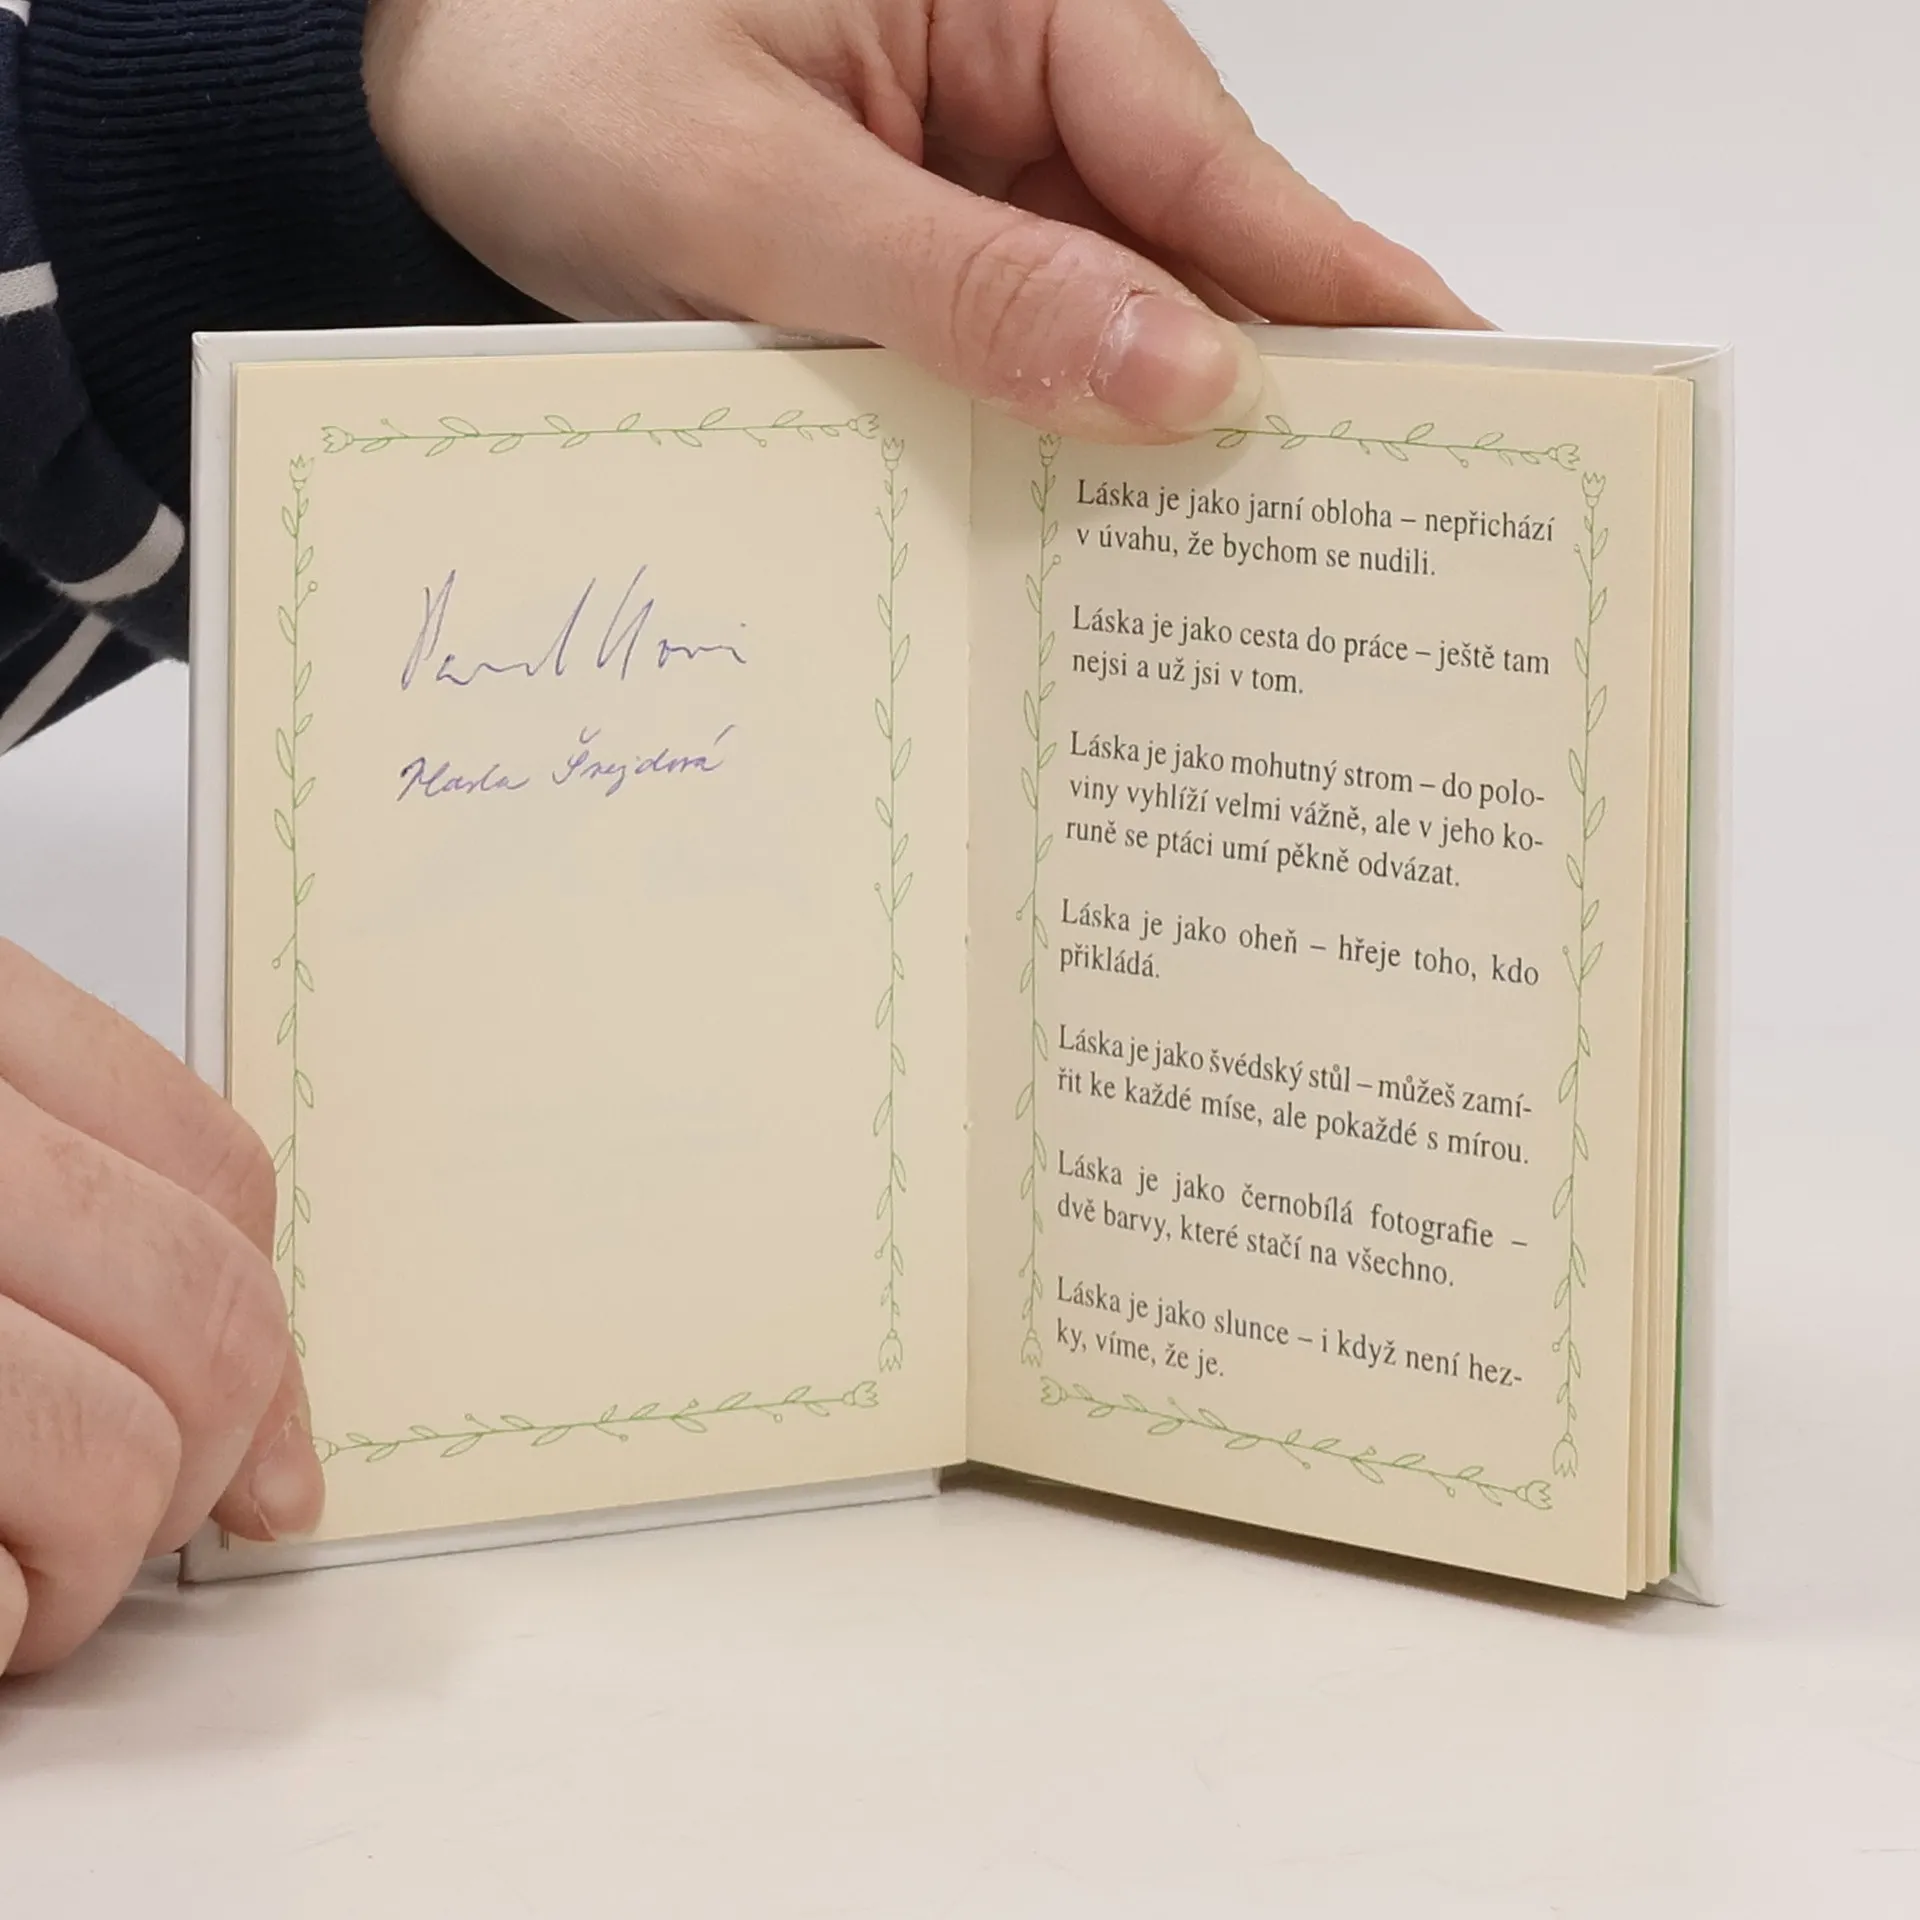 Pavel Kosorin
Marta Šrejdová
Láska je jako jarní obloha – nepřichází
v úvahu, že bychom se nudili.
Láska je jako cesta do práce – ještě tam
nejsi a už jsi v tom.
Láska je jako mohutný strom – do polo-
viny vyhlíží velmi vážně, ale v jeho ko-
runě se ptáci umí pěkně odvázat.
Láska je jako oheň – hřeje toho, kdo
přikládá.
Láska je jako švédský stůl – můžeš zamí-
řit ke každé míse, ale pokaždé s mírou.
Láska je jako černobílá fotografie –
dvě barvy, které stačí na všechno.
Láska je jako slunce – i když není hez-
ky, víme, že je.